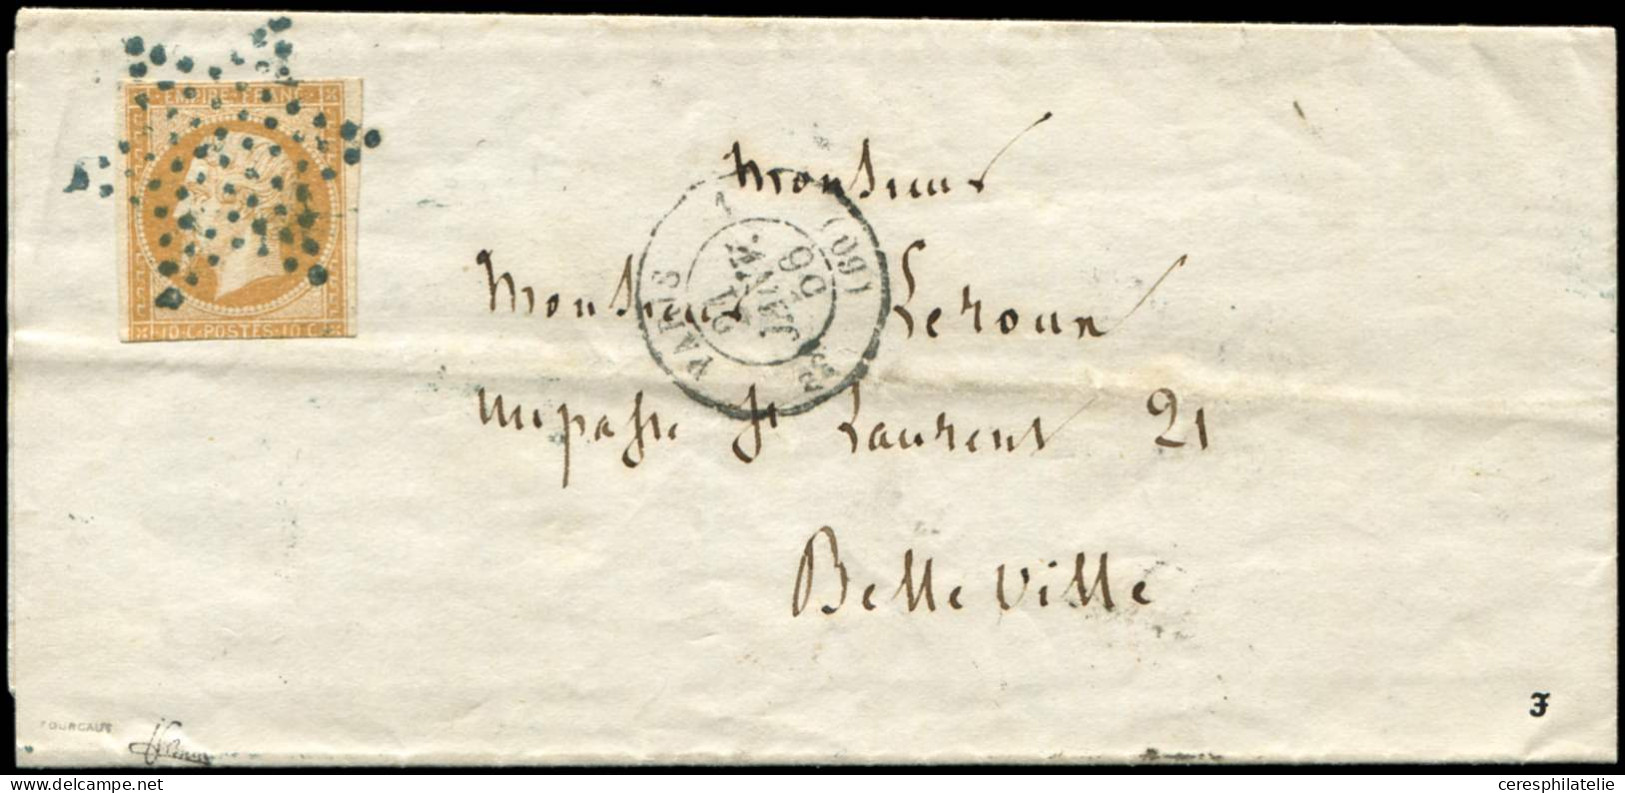 EMPIRE FRANC
10·C·POSTES·10·C
Monsieur
Monsieur Leroux
impasse St Laurent 21
Belleville
PARIS
1
21
JANV.
56
(60)
J
ceresphilatelie